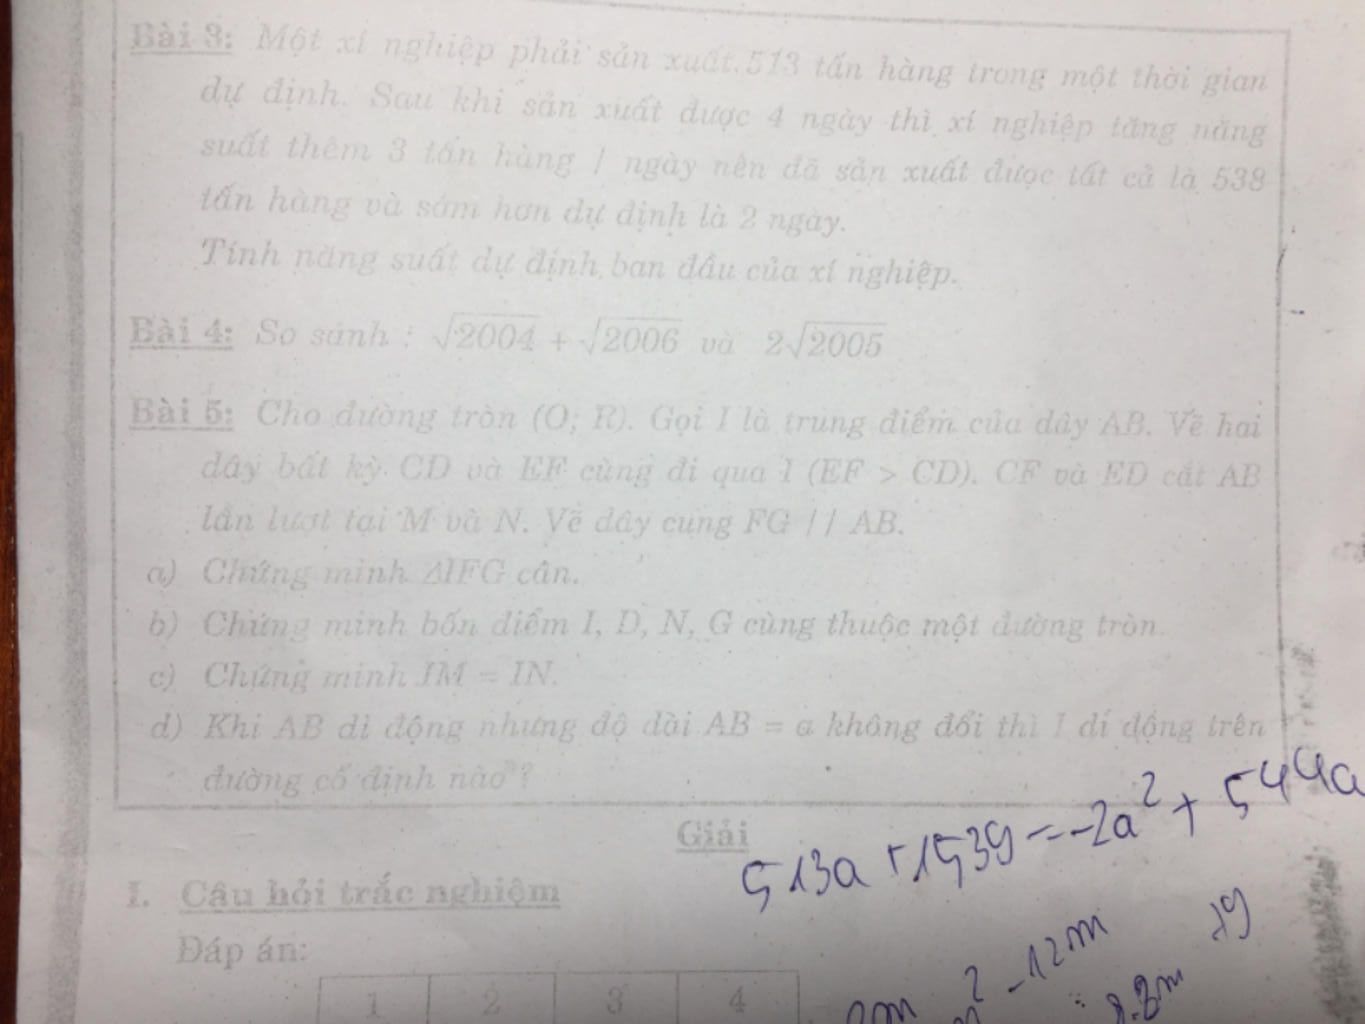 Bài 3: Một xí nghiệp phải sản xuất 513 tấn hàng trong một thời gian
dự định. Sau khi sản xuất được 4 ngày thì xí nghiệp tăng năng
suất thêm 3 tấn hàng / ngày nên đã sản xuất được tất cả là 538
tấn hàng và sớm hơn dự định là 2 ngày.
Tính năng suất dự định ban đầu của xí nghiệp.
Bài 4: So sánh : √2004 + √2006 và 2√2005
Bài 5: Cho đường tròn (O; R). Gọi I là trung điểm của dây AB. Vẽ hai
dây bất kỳ CD và EF cùng đi qua I (EF > CD). CF và ED cắt AB
lần lượt tại M và N. Vẽ dây cung FG // AB.
a) Chứng minh ΔIFG cân.
b) Chứng minh bốn điểm I, D, N, G cùng thuộc một đường tròn.
c) Chứng minh IM = IN.
d) Khi AB di động nhưng độ dài AB = a không đổi thì I di động trên
đường cố định nào ?
Giải
513a + 1539 = -2a² + 544a
I. Câu hỏi trắc nghiệm
Đáp án:
² - 12m
1 2 3 4